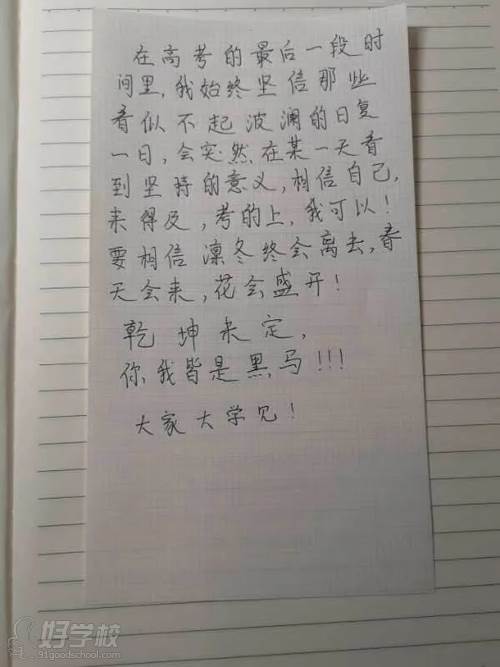 在高考的最后一段时
间里,我始终坚信那些
看似不起波澜的日复
一日,会突然在某一天看
到坚持的意义,相信自己,
来得及,考的上,我可以!
要相信凛冬终会离去,春
天会来,花会盛开!
乾坤未定,
你我皆是黑马!!!
大家大学见!
好学校
91goodschool.com